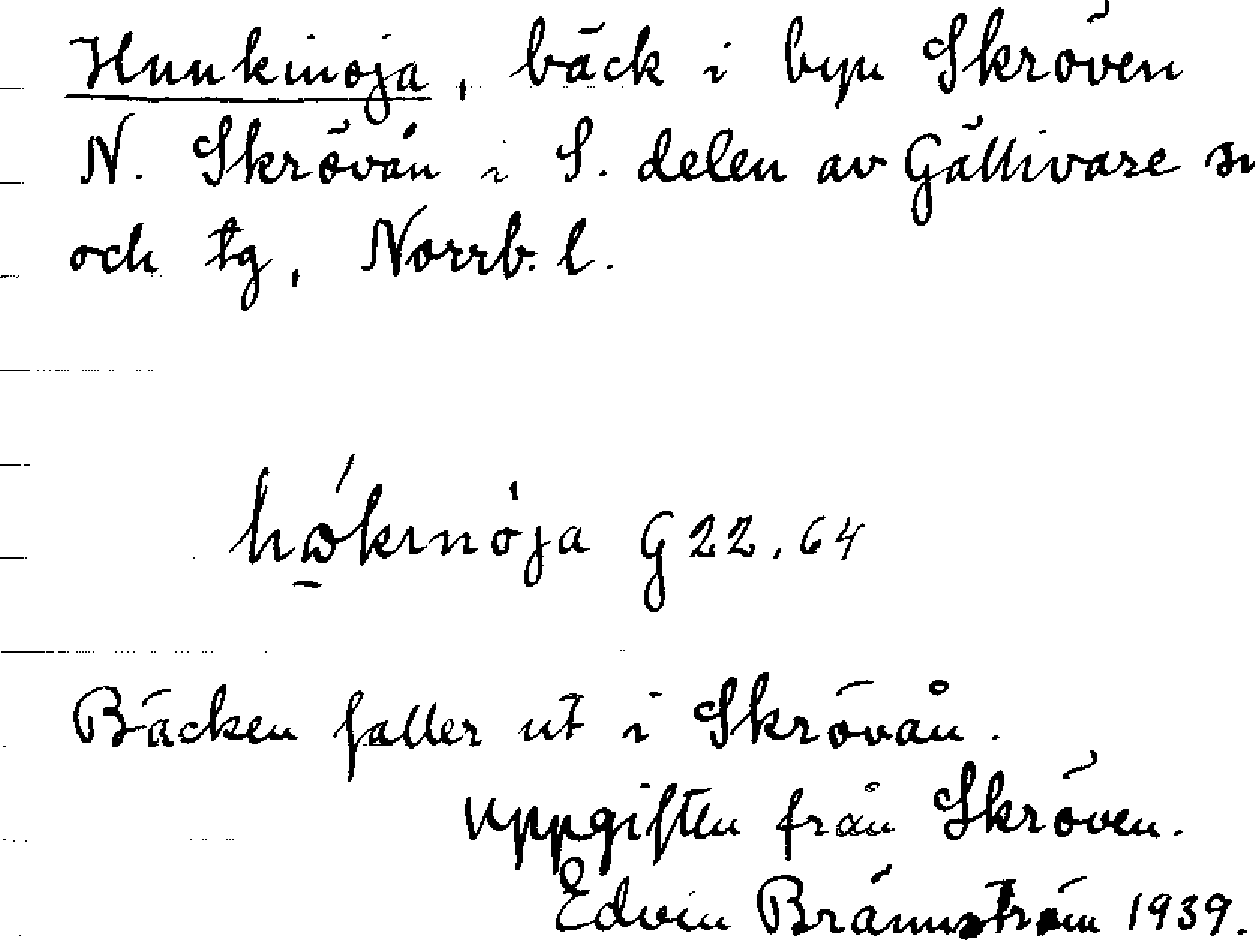 Huukinoja, bäck i byn Skröven
N. Skrövån i S. delen av Gällivare sn
och tg, Norrb. l.
G 22,64
Bäcken faller ut i Skrövån.
Uppgiften från Skröven.
Edvin Brännström 1939.